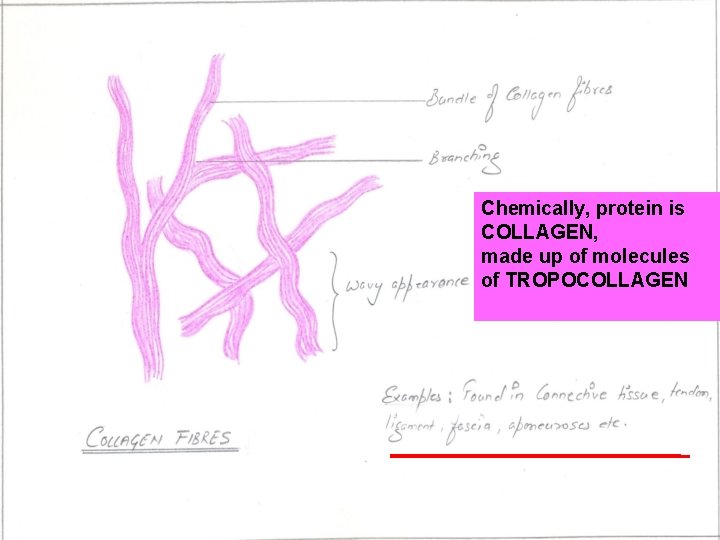 Bundle of Collagen fibres
Branching
Chemically, protein is
COLLAGEN,
made up of molecules
of TROPOCOLLAGEN
Wavy appearance
Examples: Found in Connective tissue, tendon,
ligament, fascia, aponeuroses etc.
COLLAGEN FIBRES